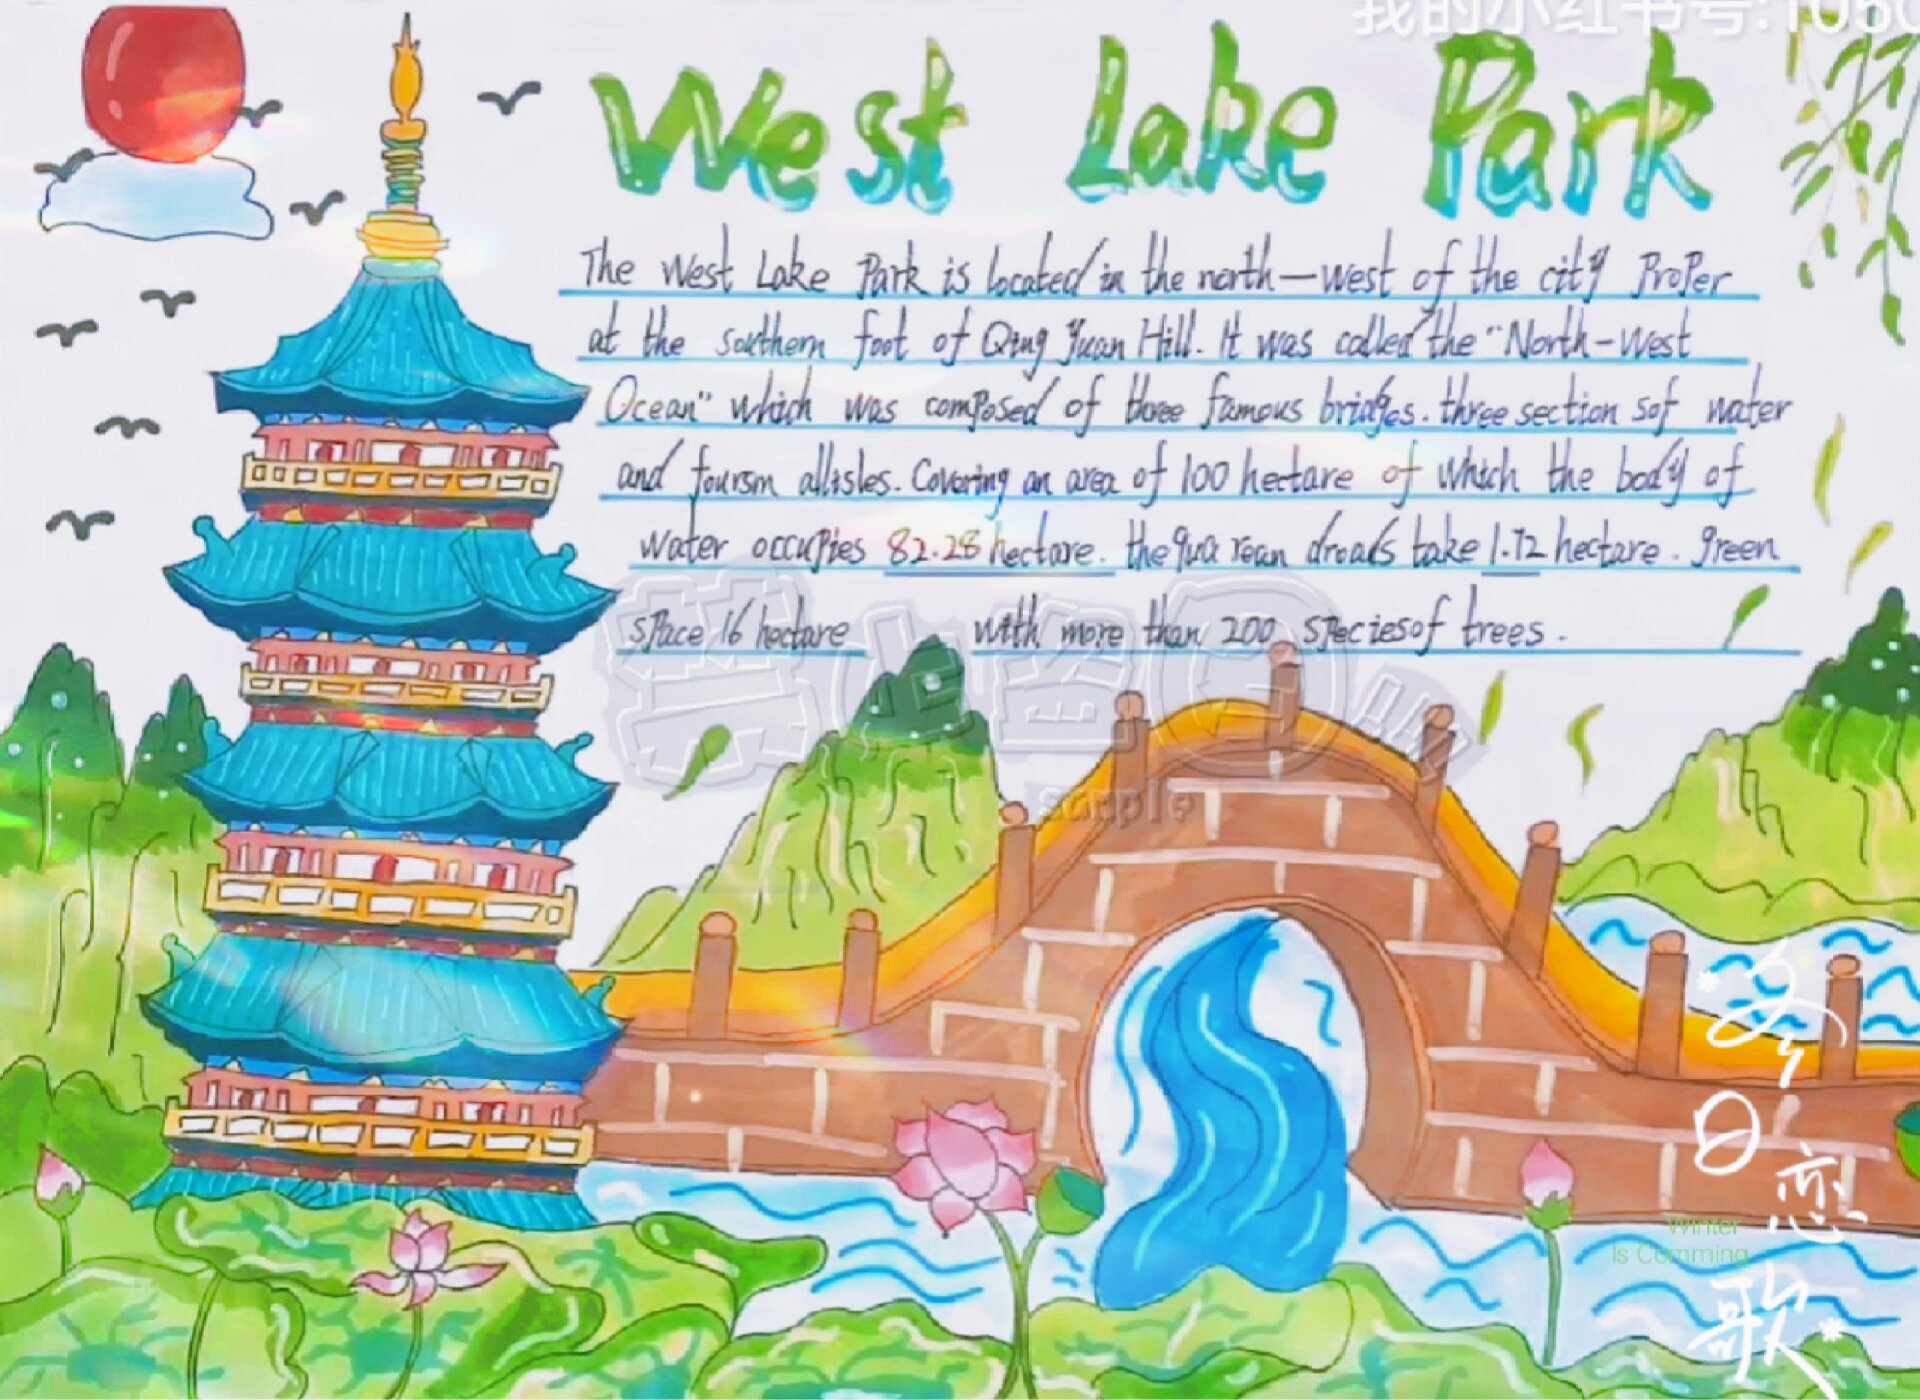 我的小红书号:1050
West Lake Park
The West Lake Park is located in the north-west of the city Proper
at the southern foot of Qing Yuan Hill. It was called the "North-West
Ocean" which was composed of three famous bridges. three section sof water
and foursm allisles. Covering an area of 100 hectare of which the body of
water occupies 82.28 hectare. the qua rean droads take 1.72 hectare. green
space 16 hectare with more than 200 speciesof trees.
sample
冬日恋歌
Winter
Is Comming